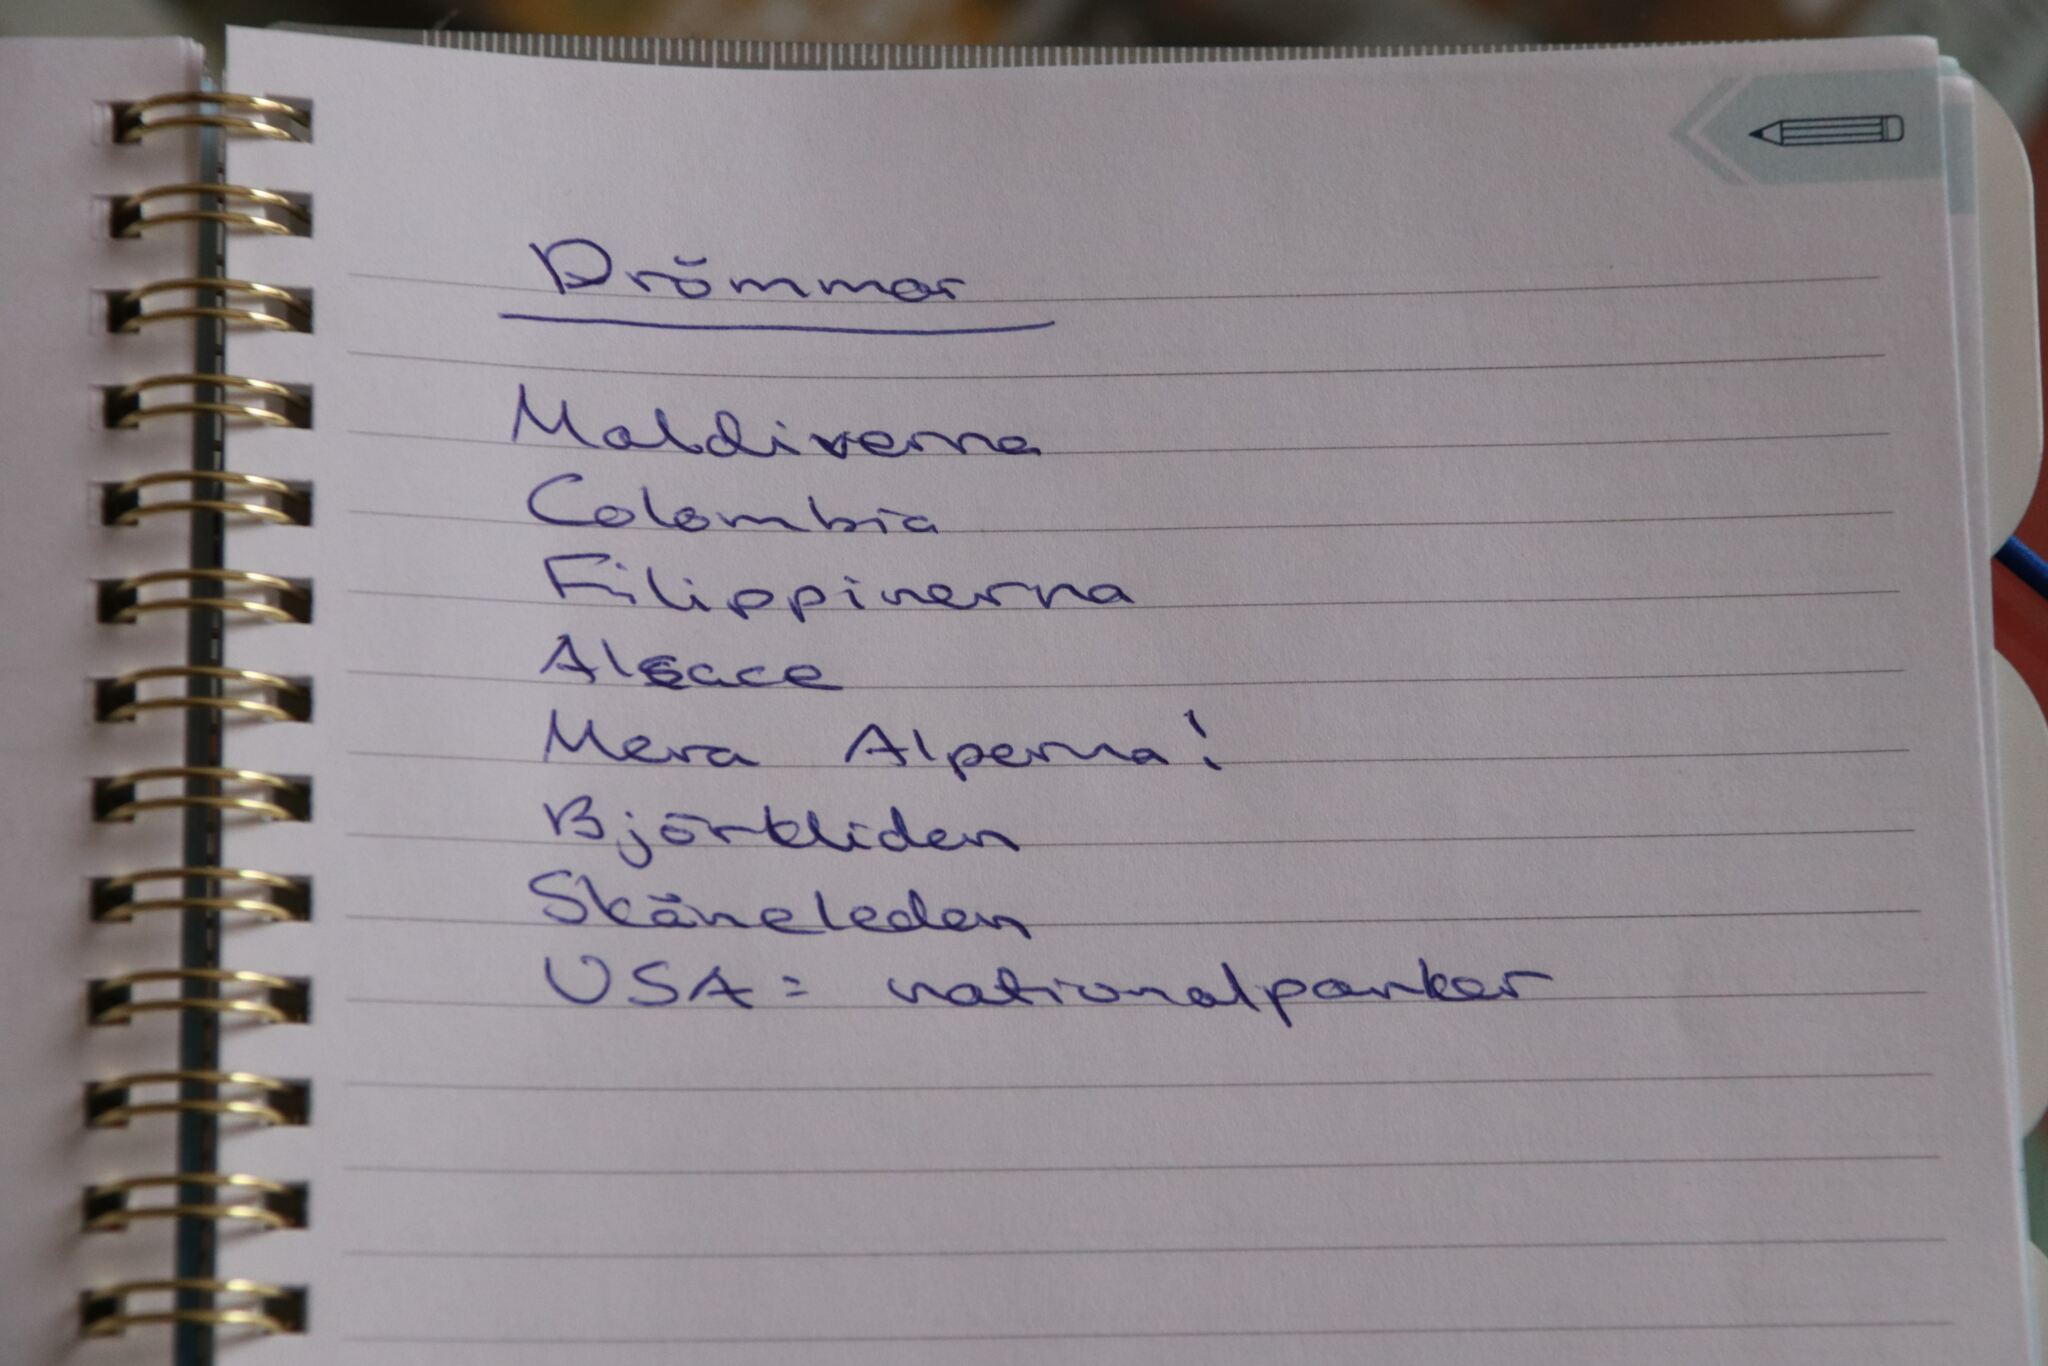 Drömmar
Maldiverna
Colombia
Filippinerna
Alsace
Mera Alperna!
Björkliden
Skåneleden
USA = nationalparker